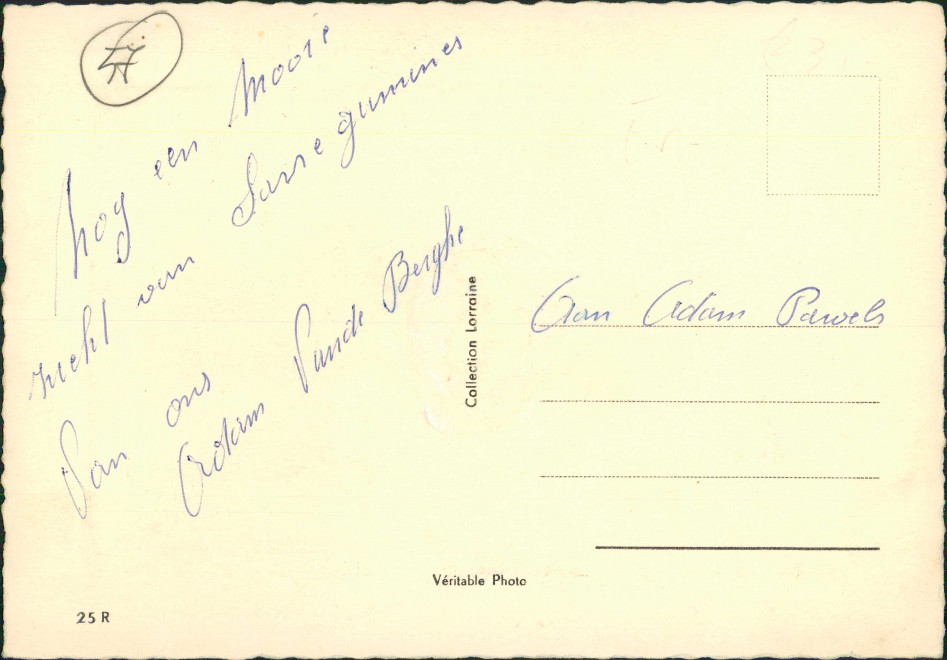 57
Nog een Mooie
zicht van Sarregumines
Van ons
Adam Vande Berghe
Collection Lorraine
Aan Adam Pawels
Véritable Photo
25 R